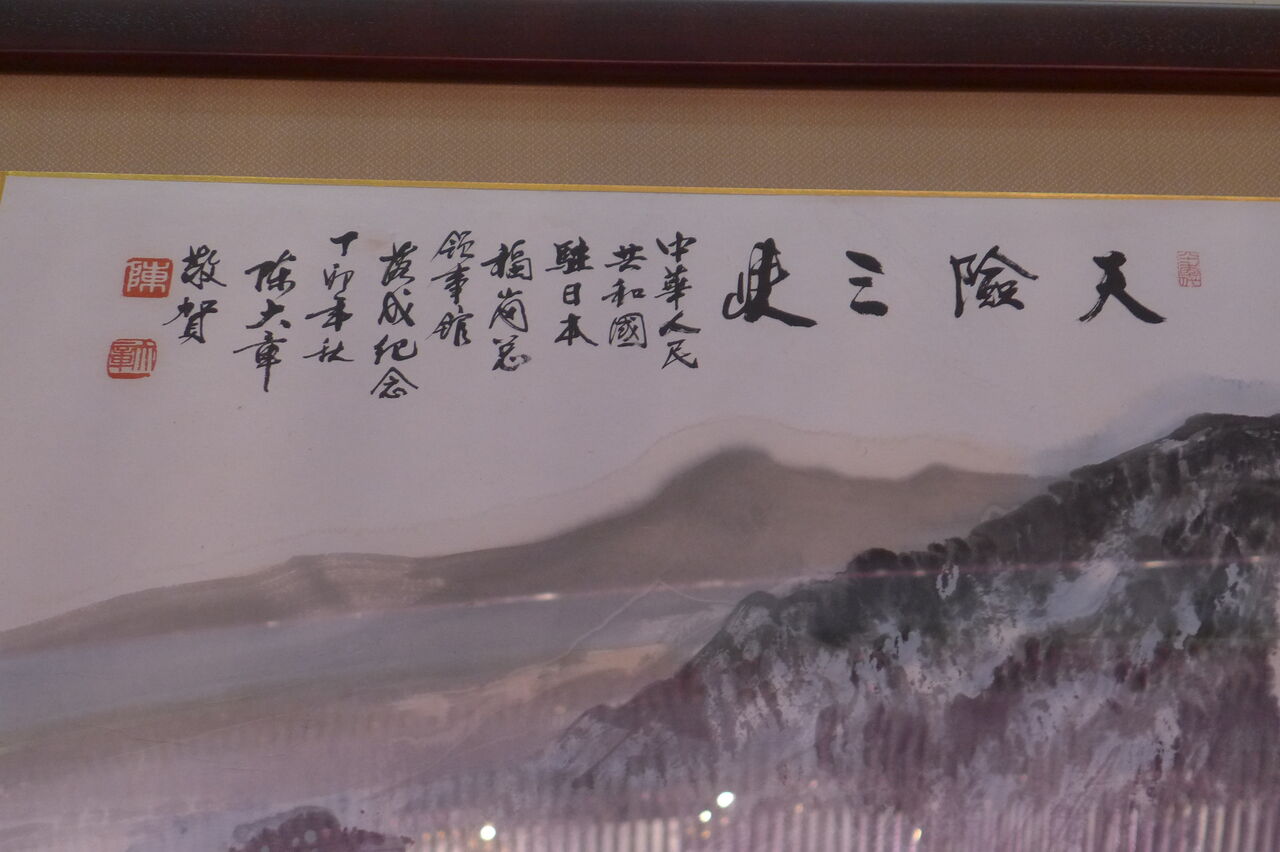 天險三峽
中華人民
共和國
駐日本
福崗总
領事館
落成纪念
丁卯年秋
陈大章
敬賀
陳
大章